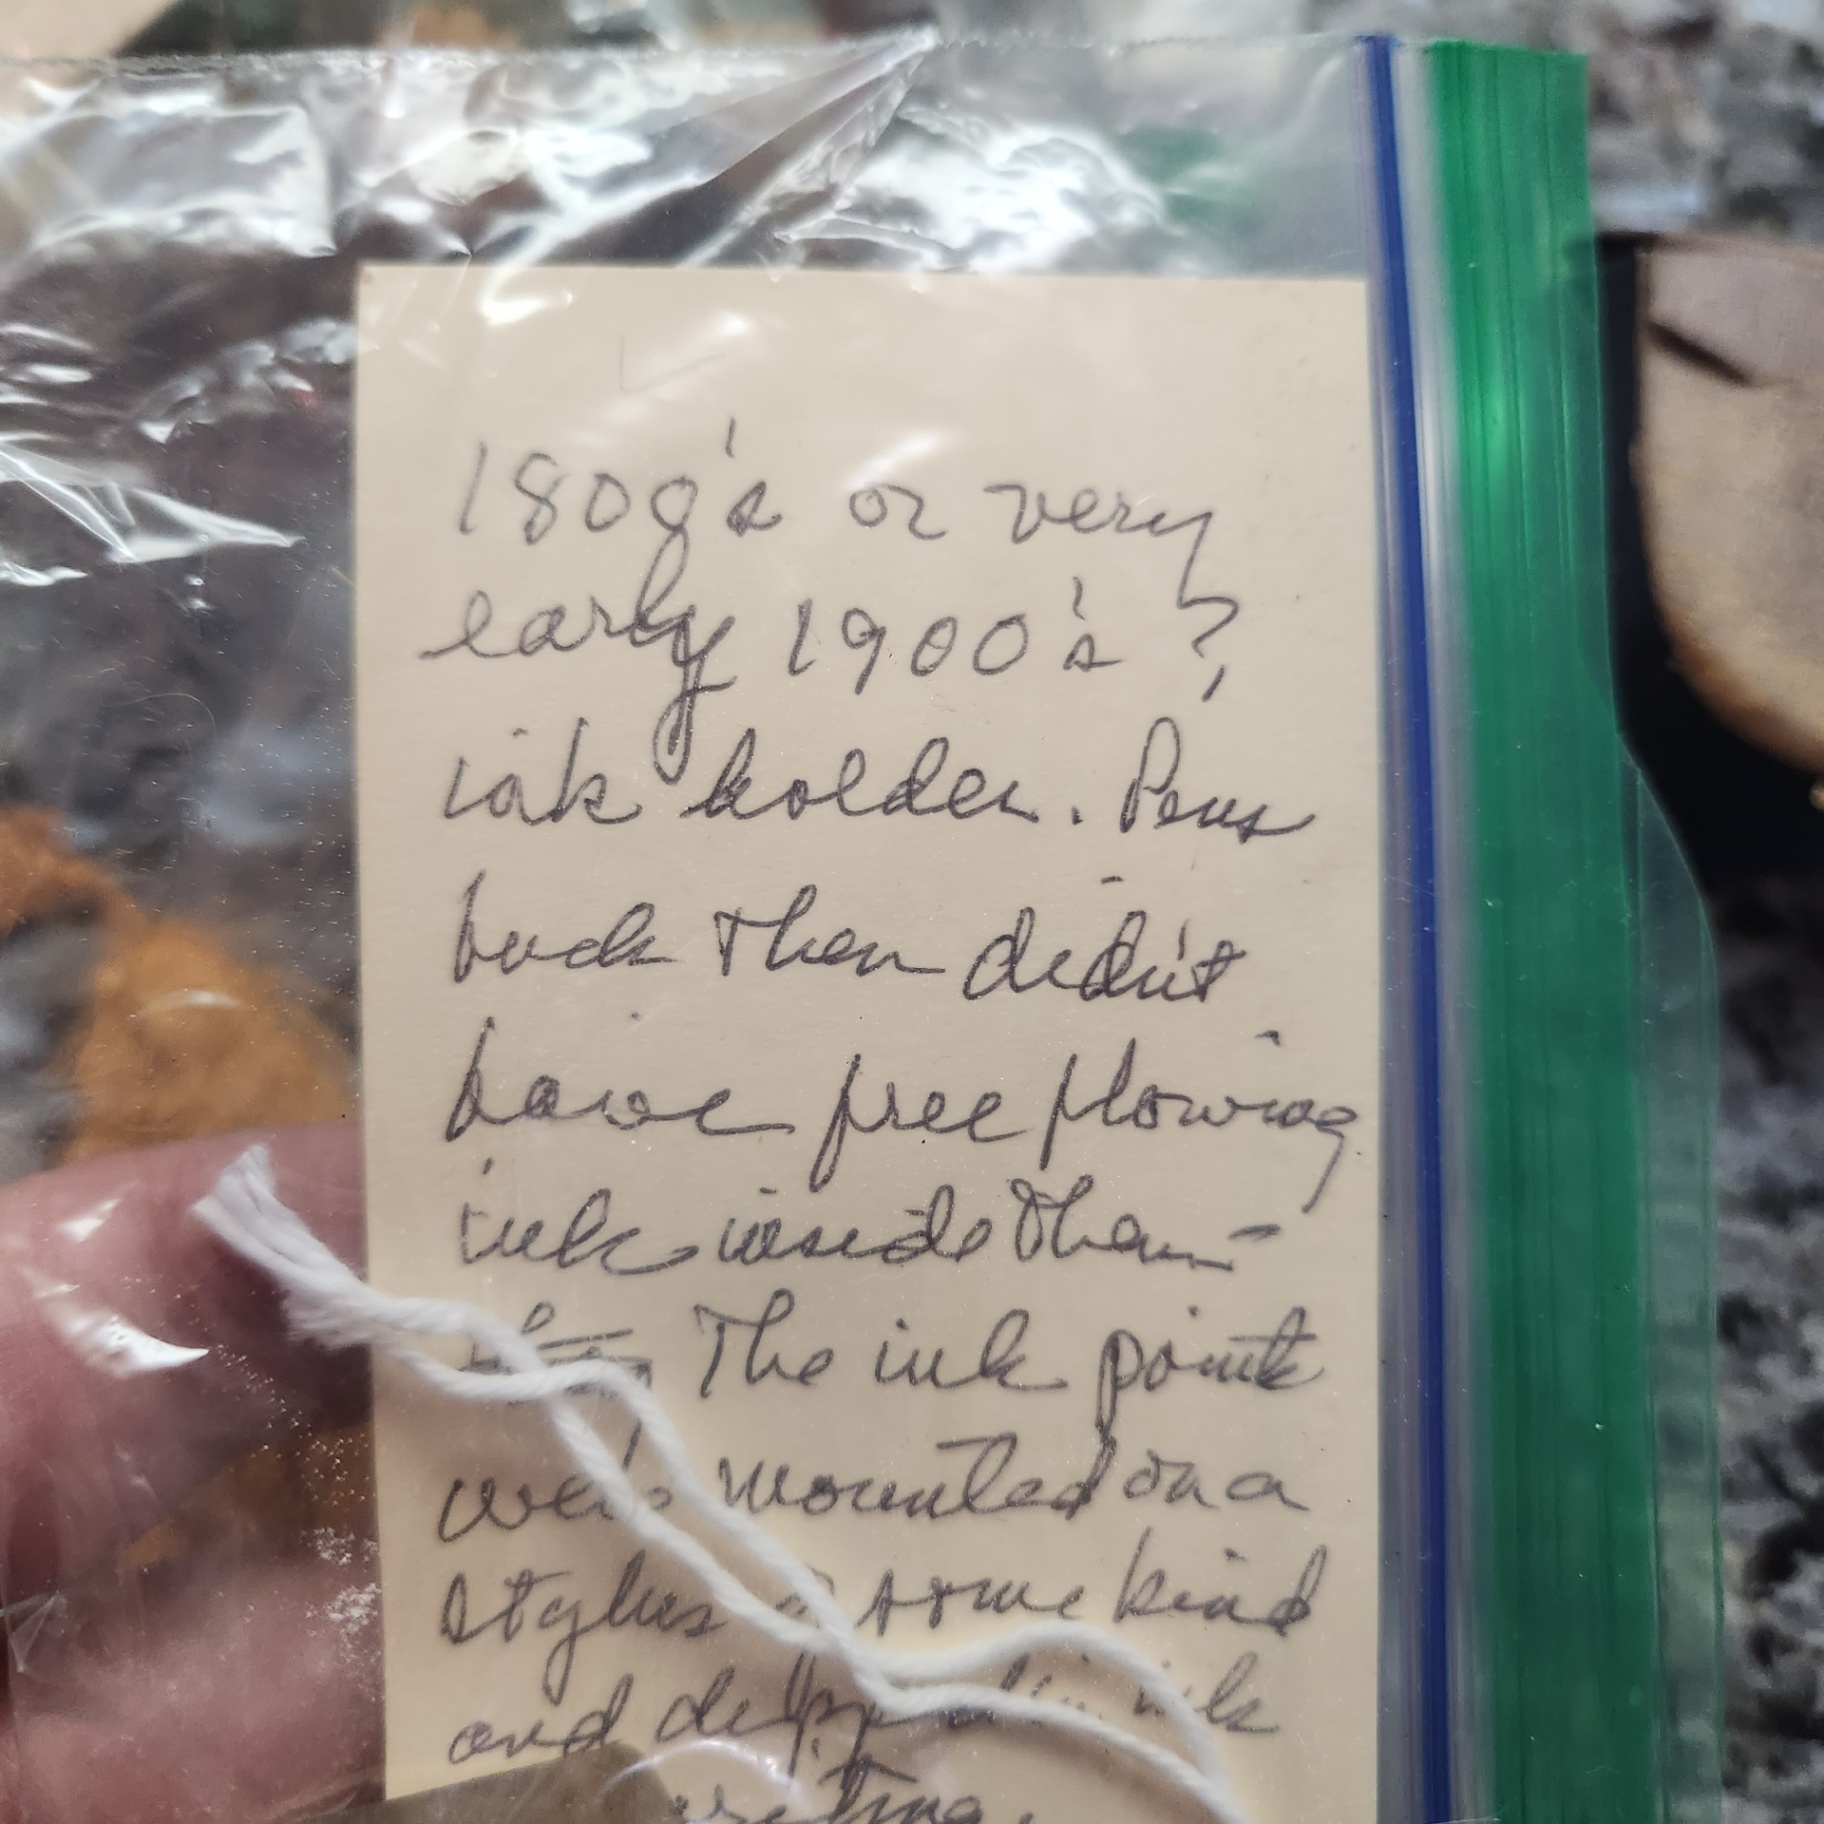 1800's or very
early 1900's?
ink holder. Pens
back then didn't
have free flowing
ink inside them-
The ink points
were mounted on a
stylus of some kind
and dipped in ink
writing.